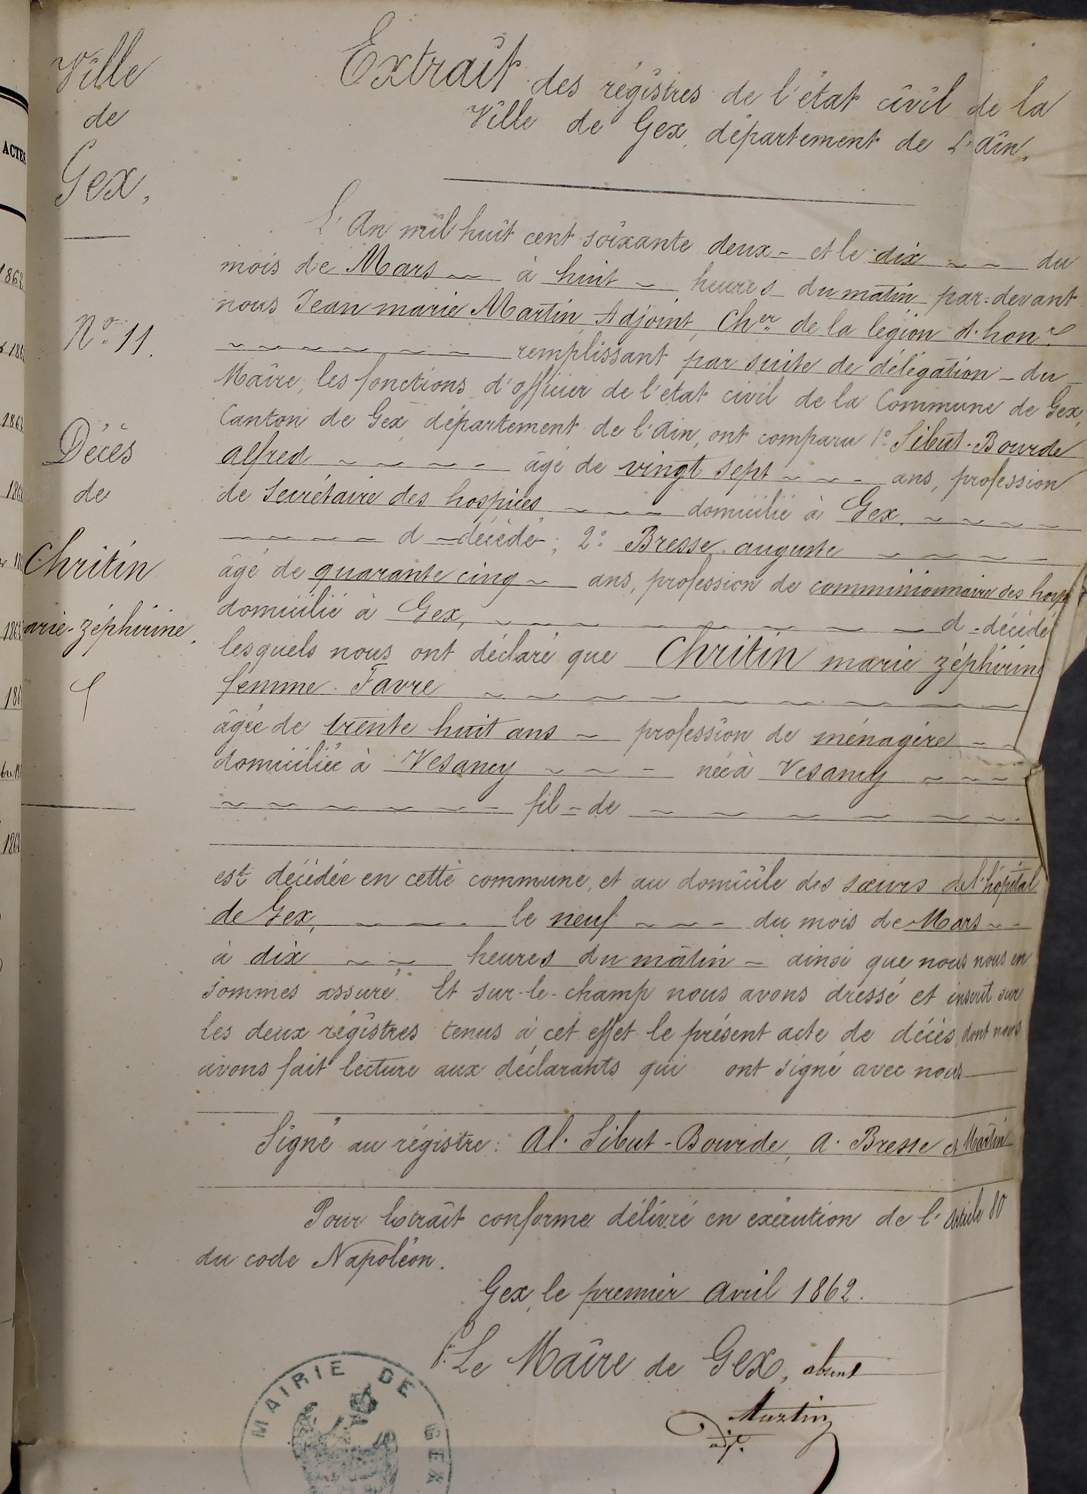 Ville
de
Gex,
N° 11.
Décès
de
Chritin
arie-zéphirine.
ACTES
Extrait des régistres de l'état civil de la
Ville de Gex, département de L'ain,
L'An mil huit cent soixante deux - et le dix du
mois de Mars à huit heures du matin par-devant
nous Jean marie Martin Adjoint, Cher de la légion d'honr
remplissant par suite de délégation du
Maire, les fonctions d'officier de l'état civil de la Commune de Gex,
Canton de Gex, département de l'Ain, ont comparu 1° Sibut-Bourde
alfred âgé de vingt sept ans, profession
de Secrétaire des hospices domicilié à Gex.
d décédé; 2° Bresse auguste
âgé de quarante cinq ans, profession de commissionnaire des hosp
domicilié à Gex, d décédé
lesquels nous ont déclaré que Chritin marie zéphirine
femme Favre
âgée de trente huit ans profession de ménagère
domiciliée à Vesancy née à Vesancy
fil = de
est décédée en cette commune, et au domicile des sœurs de l'hôpital
de Gex, le neuf du mois de Mars
à dix heures du matin = ainsi que nous nous en
sommes assuré. Et sur-le-champ nous avons dressé et inscrit sur
les deux régistres tenus à cet effet le présent acte de décès, dont nous
avons fait lecture aux déclarants qui ont signé avec nous
Signé au régistre: Al. Sibut-Bourde, A. Bresse et Martin
Pour Extrait conforme délivré en exécution de l'Article 80
du code Napoléon.
Gex, le premier avril 1862.
P. Le Maire de Gex, absent
Martin
adj.
MAIRIE DE GEX